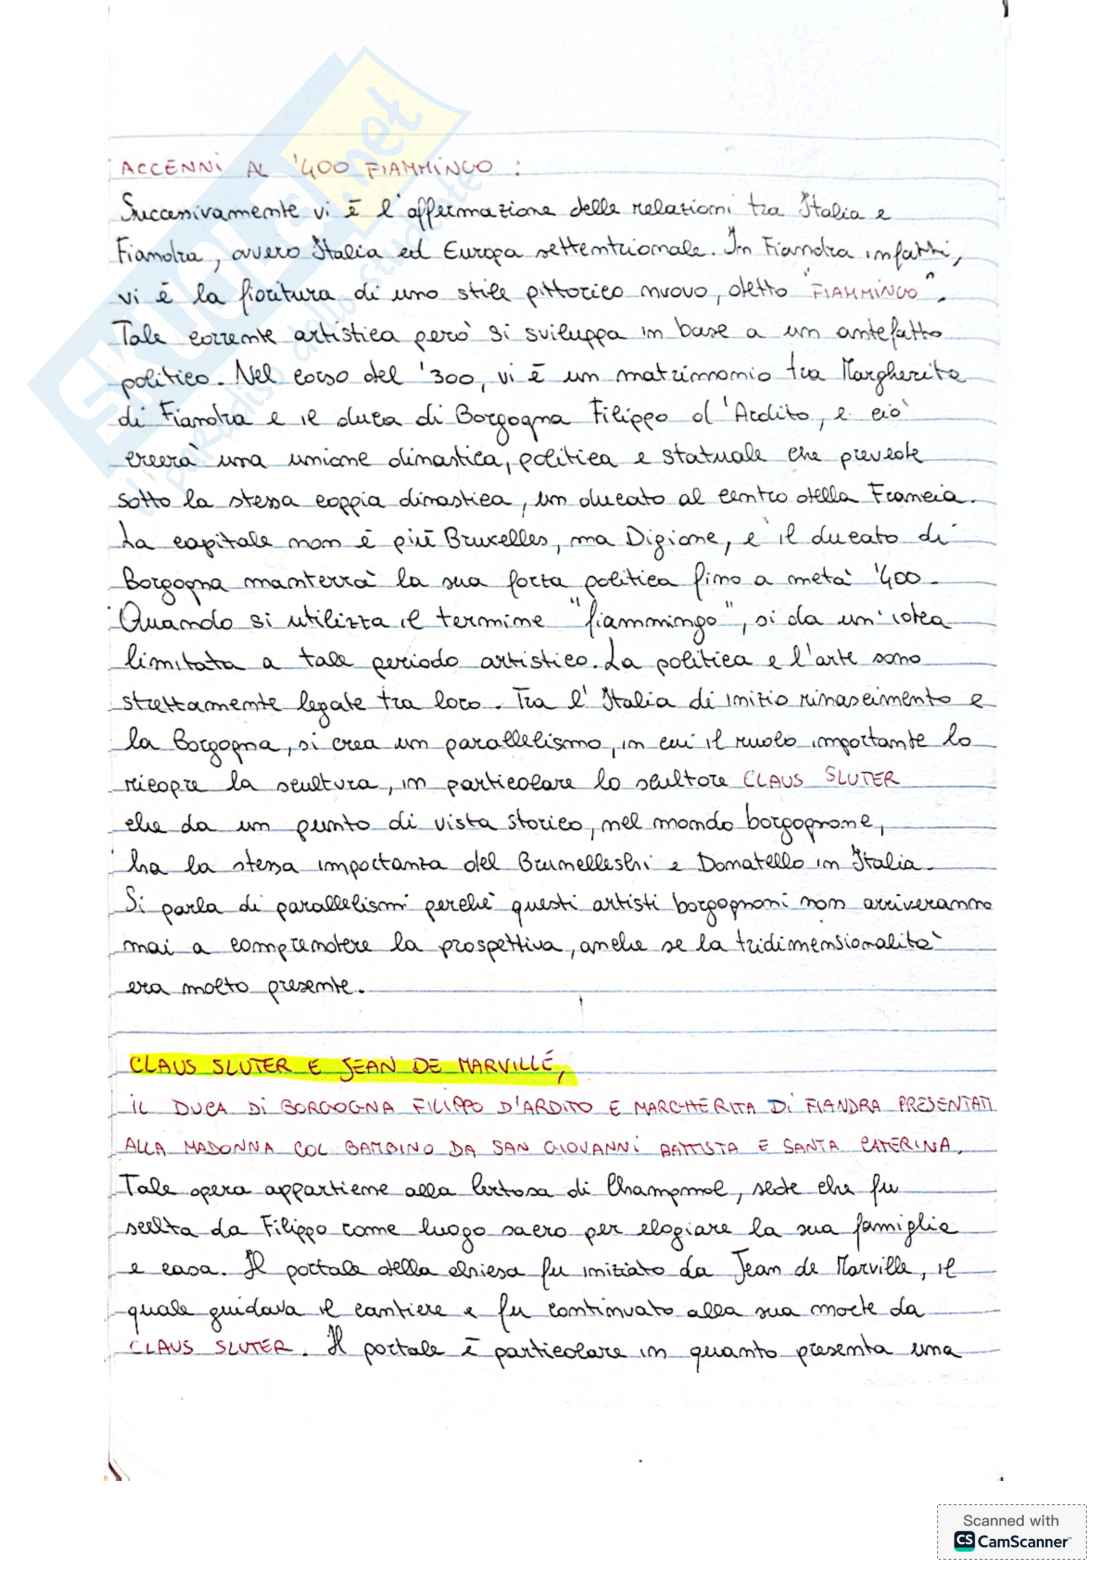 ACCENNI AL '400 FIAMMINGO :
Successivamente vi è l'affermazione delle relazioni tra Italia e
Fiandra, ovvero Italia ed Europa settentrionale. In Fiandra infatti,
vi è la fioritura di uno stile pittorico nuovo, detto "FIAMMINGO".
Tale corrente artistica però si sviluppa in base a un antefatto
politico. Nel corso del '300, vi è un matrimonio tra Margherita
di Fiandra e il duca di Borgogna Filippo d'Ardito, e ciò
creerà una unione dinastica, politica e statuale che prevede
sotto la stessa coppia dinastica, un ducato al centro della Francia.
La capitale non è più Bruxelles, ma Digione, e il ducato di
Borgogna manterrà la sua forza politica fino a metà '400.
Quando si utilizza il termine "fiammingo", si da un'idea
limitata a tale periodo artistico. La politica e l'arte sono
strettamente legate tra loro. Tra l'Italia di inizio rinascimento e
la Borgogna, si crea un parallelismo, in cui il ruolo importante lo
ricopre la scultura, in particolare lo scultore CLAUS SLUTER
che da un punto di vista storico, nel mondo borgognone,
ha la stessa importanza del Brunelleschi e Donatello in Italia.
Si parla di parallelismi perchè questi artisti borgognoni non arriveranno
mai a comprendere la prospettiva, anche se la tridimensionalità
era molto presente.
CLAUS SLUTER E JEAN DE MARVILLÉ,
IL DUCA DI BORGOGNA FILIPPO D'ARDITO E MARGHERITA DI FIANDRA PRESENTATI
ALLA MADONNA COL BAMBINO DA SAN GIOVANNI BATTISTA E SANTA CATERINA.
Tale opera appartiene alla Certosa di Champmol, sede che fu
scelta da Filippo come luogo sacro per elogiare la sua famiglia
e casa. Il portale della chiesa fu iniziato da Jean de Marville, il
quale guidava il cantiere e fu continuato alla sua morte da
CLAUS SLUTER. Il portale è particolare in quanto presenta una
SKUOLA.net
il paradiso dello studente
Scanned with
CS CamScanner